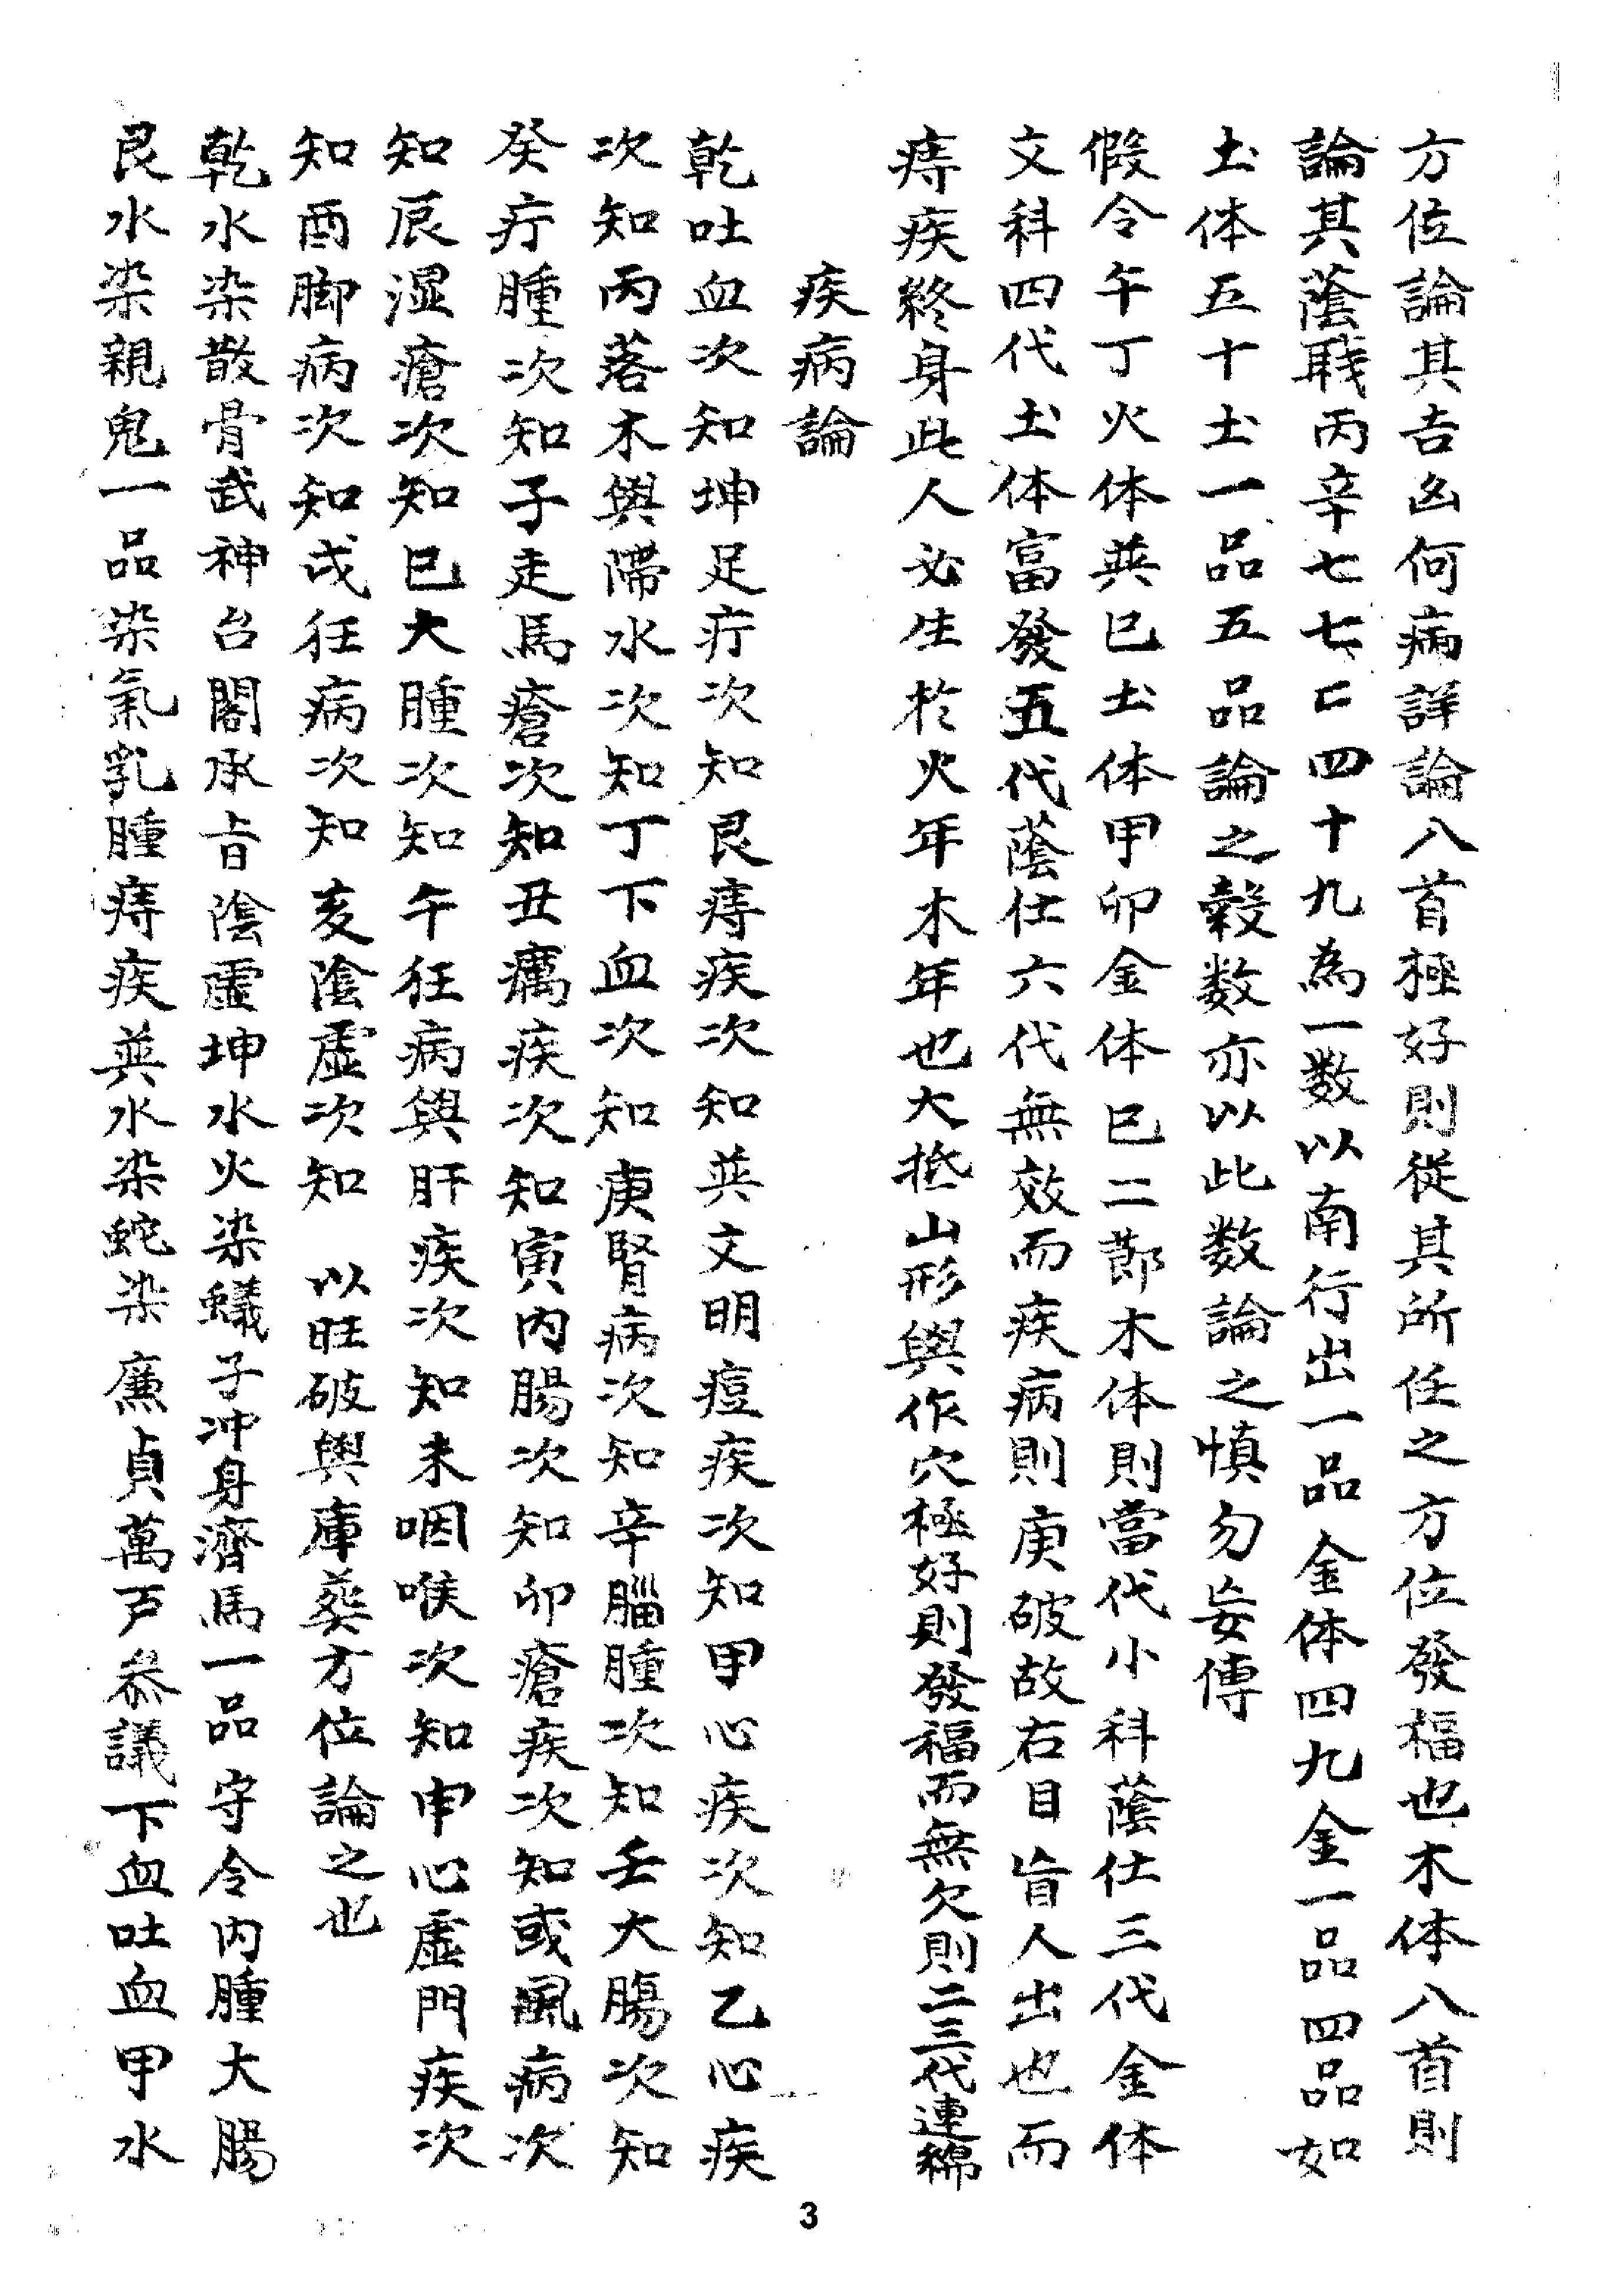 方位論其吉凶何病詳論八首極好則從其所任之方位發福也木体八首則
論其蔭職丙辛七七七亡四十九為一数以南行出一品金体四九金一品四品如
土体五十土一品五品論之穀数亦以此数論之慎勿妄傳
假令午丁火体巽巳土体甲卯金体巳二節木体則當代小科蔭仕三代金体
文科四代土体富發五代蔭仕六代無效而疾病則庚破故右目盲人出也而
痔疾終身此人必生於火年木年也大抵山形與作穴極好則發福而無欠則二三代連綿
疾病論
乾吐血次知坤足疔次知艮痔疾次知巽文明痘疾次知甲心疾次知乙心疾
次知丙落木與滯水次知丁下血次知庚腎病次知辛腦腫次知壬大腸次知
癸疔腫次知子走馬瘡次知丑癘疾次知寅內腸次知卯瘡疾次知或風病次
知辰湿瘡次知巳大腫次知午狂病與肝疾次知未咽喉次知申心虛門疾次
知酉脚病次知戌狂病次知亥陰虛次知 以旺破與庫葬方位論之也
乾水染散骨武神台閣承旨陰虛坤水火染蟻子冲身濟馬一品守令內腫大腸
艮水染親鬼一品染氣乳腫痔疾巽水染蛇染廉貞萬戶叅議下血吐血甲水
3